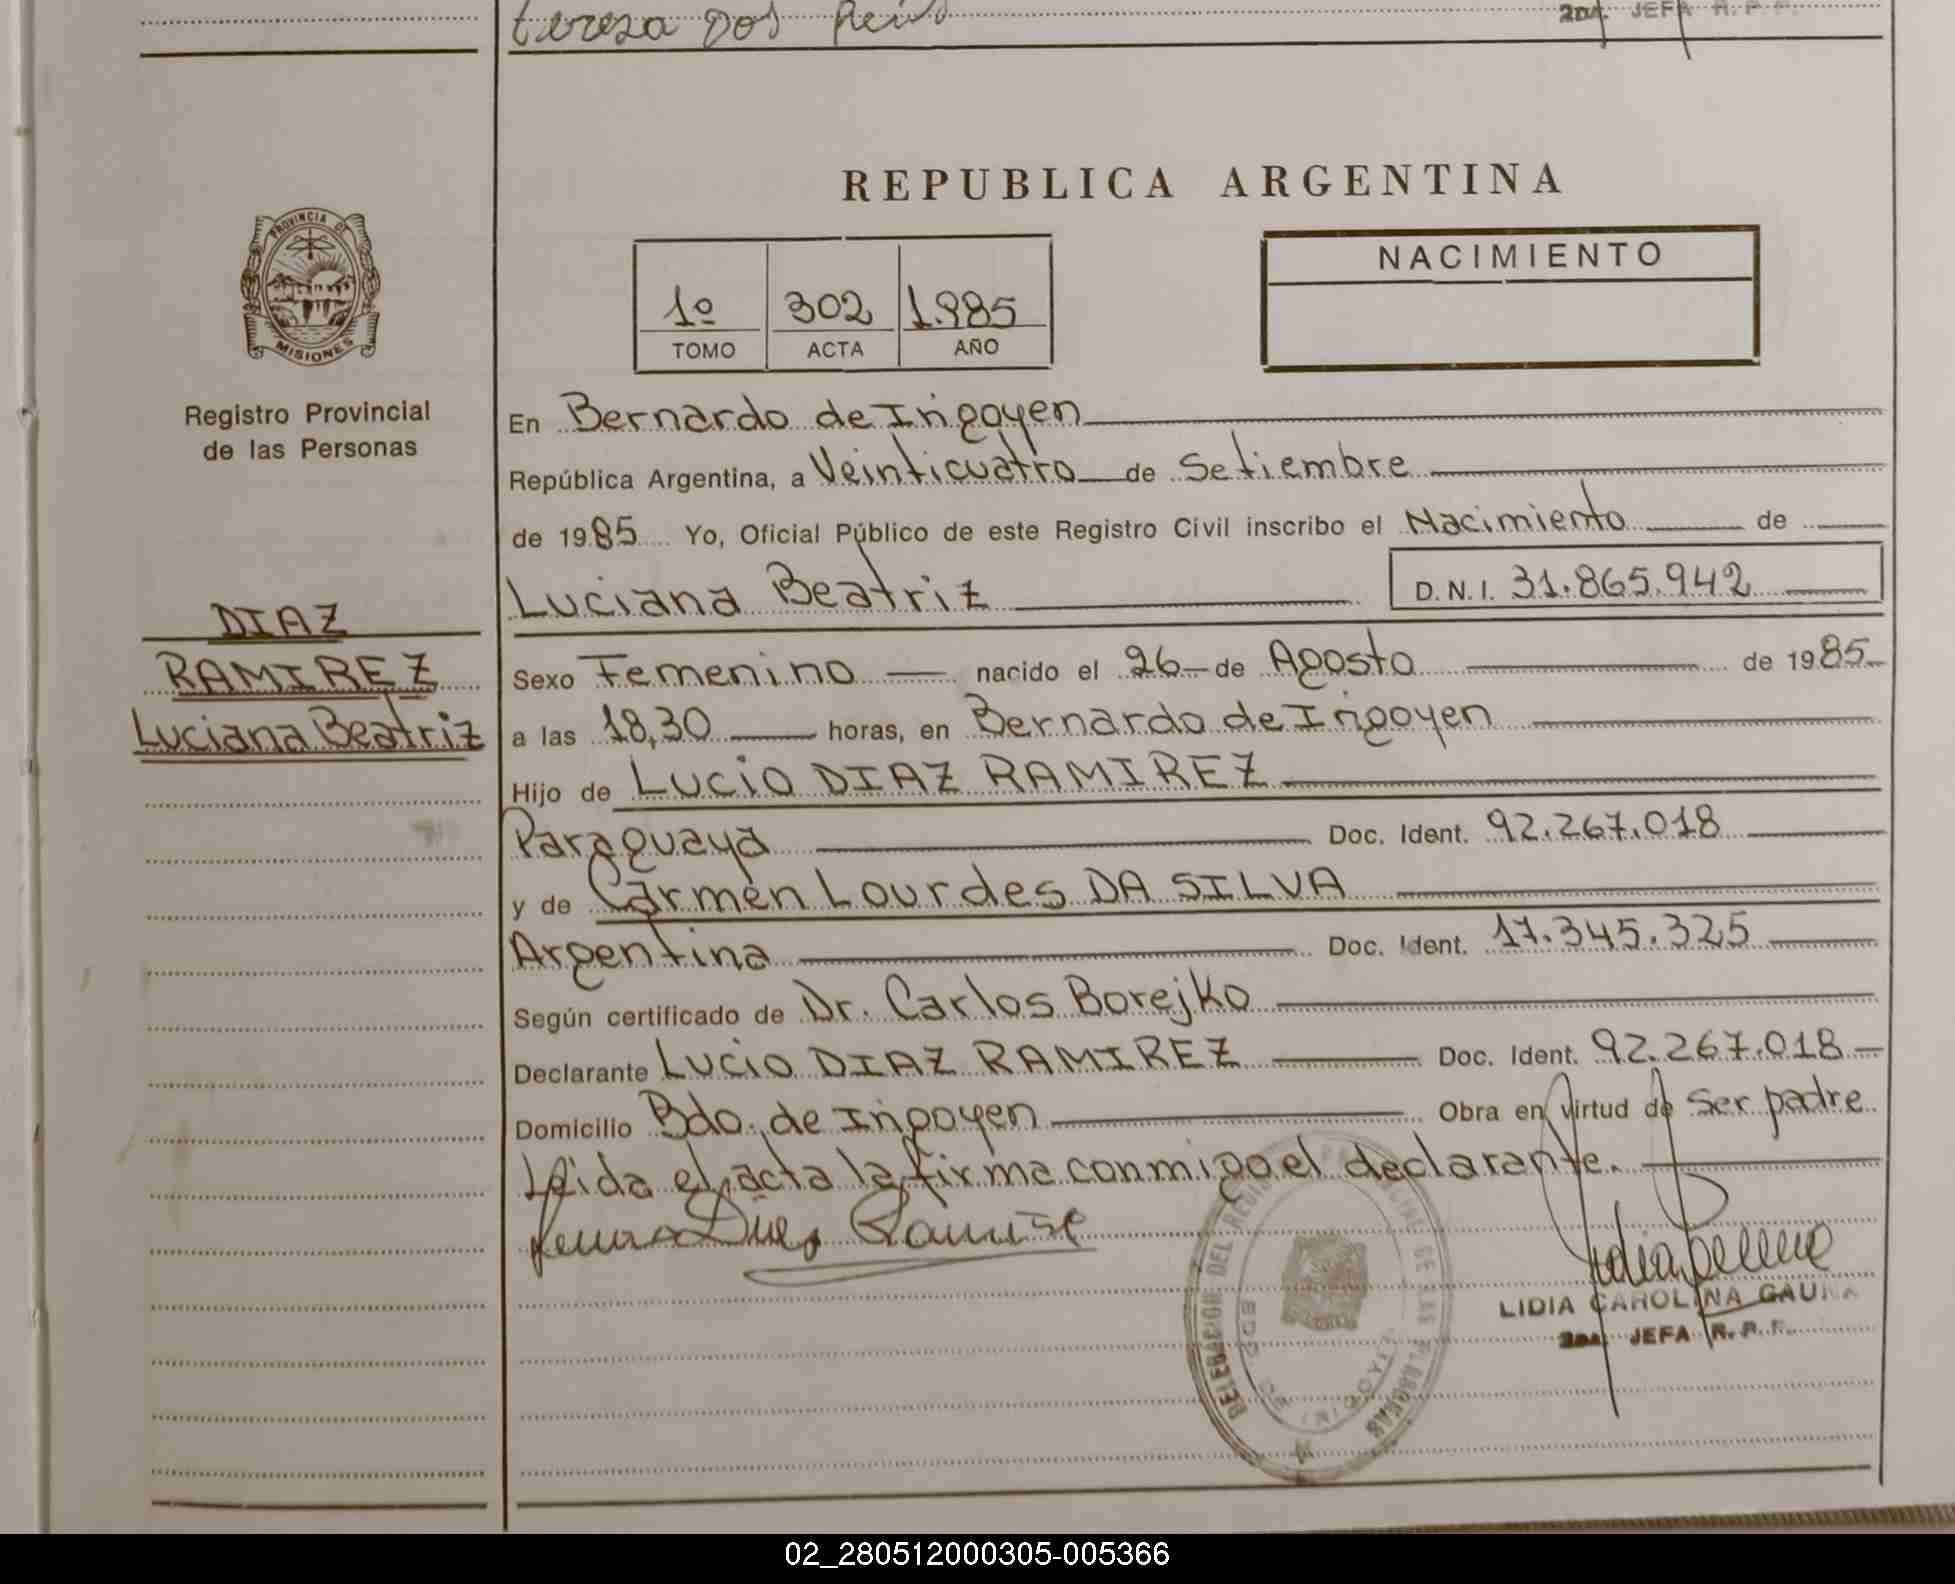 teresa Dos Reis
2DA. JEFA R. P. P.
REPUBLICA ARGENTINA
PROVINCIA DE
MISIONES
Registro Provincial
de las Personas
1º 302 1.985
TOMO ACTA AÑO
NACIMIENTO
En Bernardo de Irigoyen
República Argentina, a Veinticuatro de Setiembre
de 1985 Yo, Oficial Público de este Registro Civil inscribo el Nacimiento de
Luciana Beatriz D.N.I. 31.865.942
DIAZ
RAMIREZ
Luciana Beatriz
Sexo Femenino nacido el 26 de Agosto de 1985
a las 18,30 horas, en Bernardo de Irigoyen
Hijo de Lucio DIAZ RAMIREZ
Paraguaya Doc. Ident. 92.267.018
y de Carmen Lourdes DA SILVA
Argentina Doc. Ident. 17.345.325
Según certificado de Dr. Carlos Borejko
Declarante Lucio DIAZ RAMIREZ Doc. Ident. 92.267.018
Domicilio Bdo. de Irigoyen Obra en virtud de Ser padre
Leida el acta la firma conmigo el declarante.
Diaz Ramirez
DELEGACION DEL REGISTRO PROVINCIAL DE LAS PERSONAS
BDO. DE IRIGOYEN
LIDIA CAROLINA GAUNA
2DA. JEFA R. P. P.
02_280512000305-005366